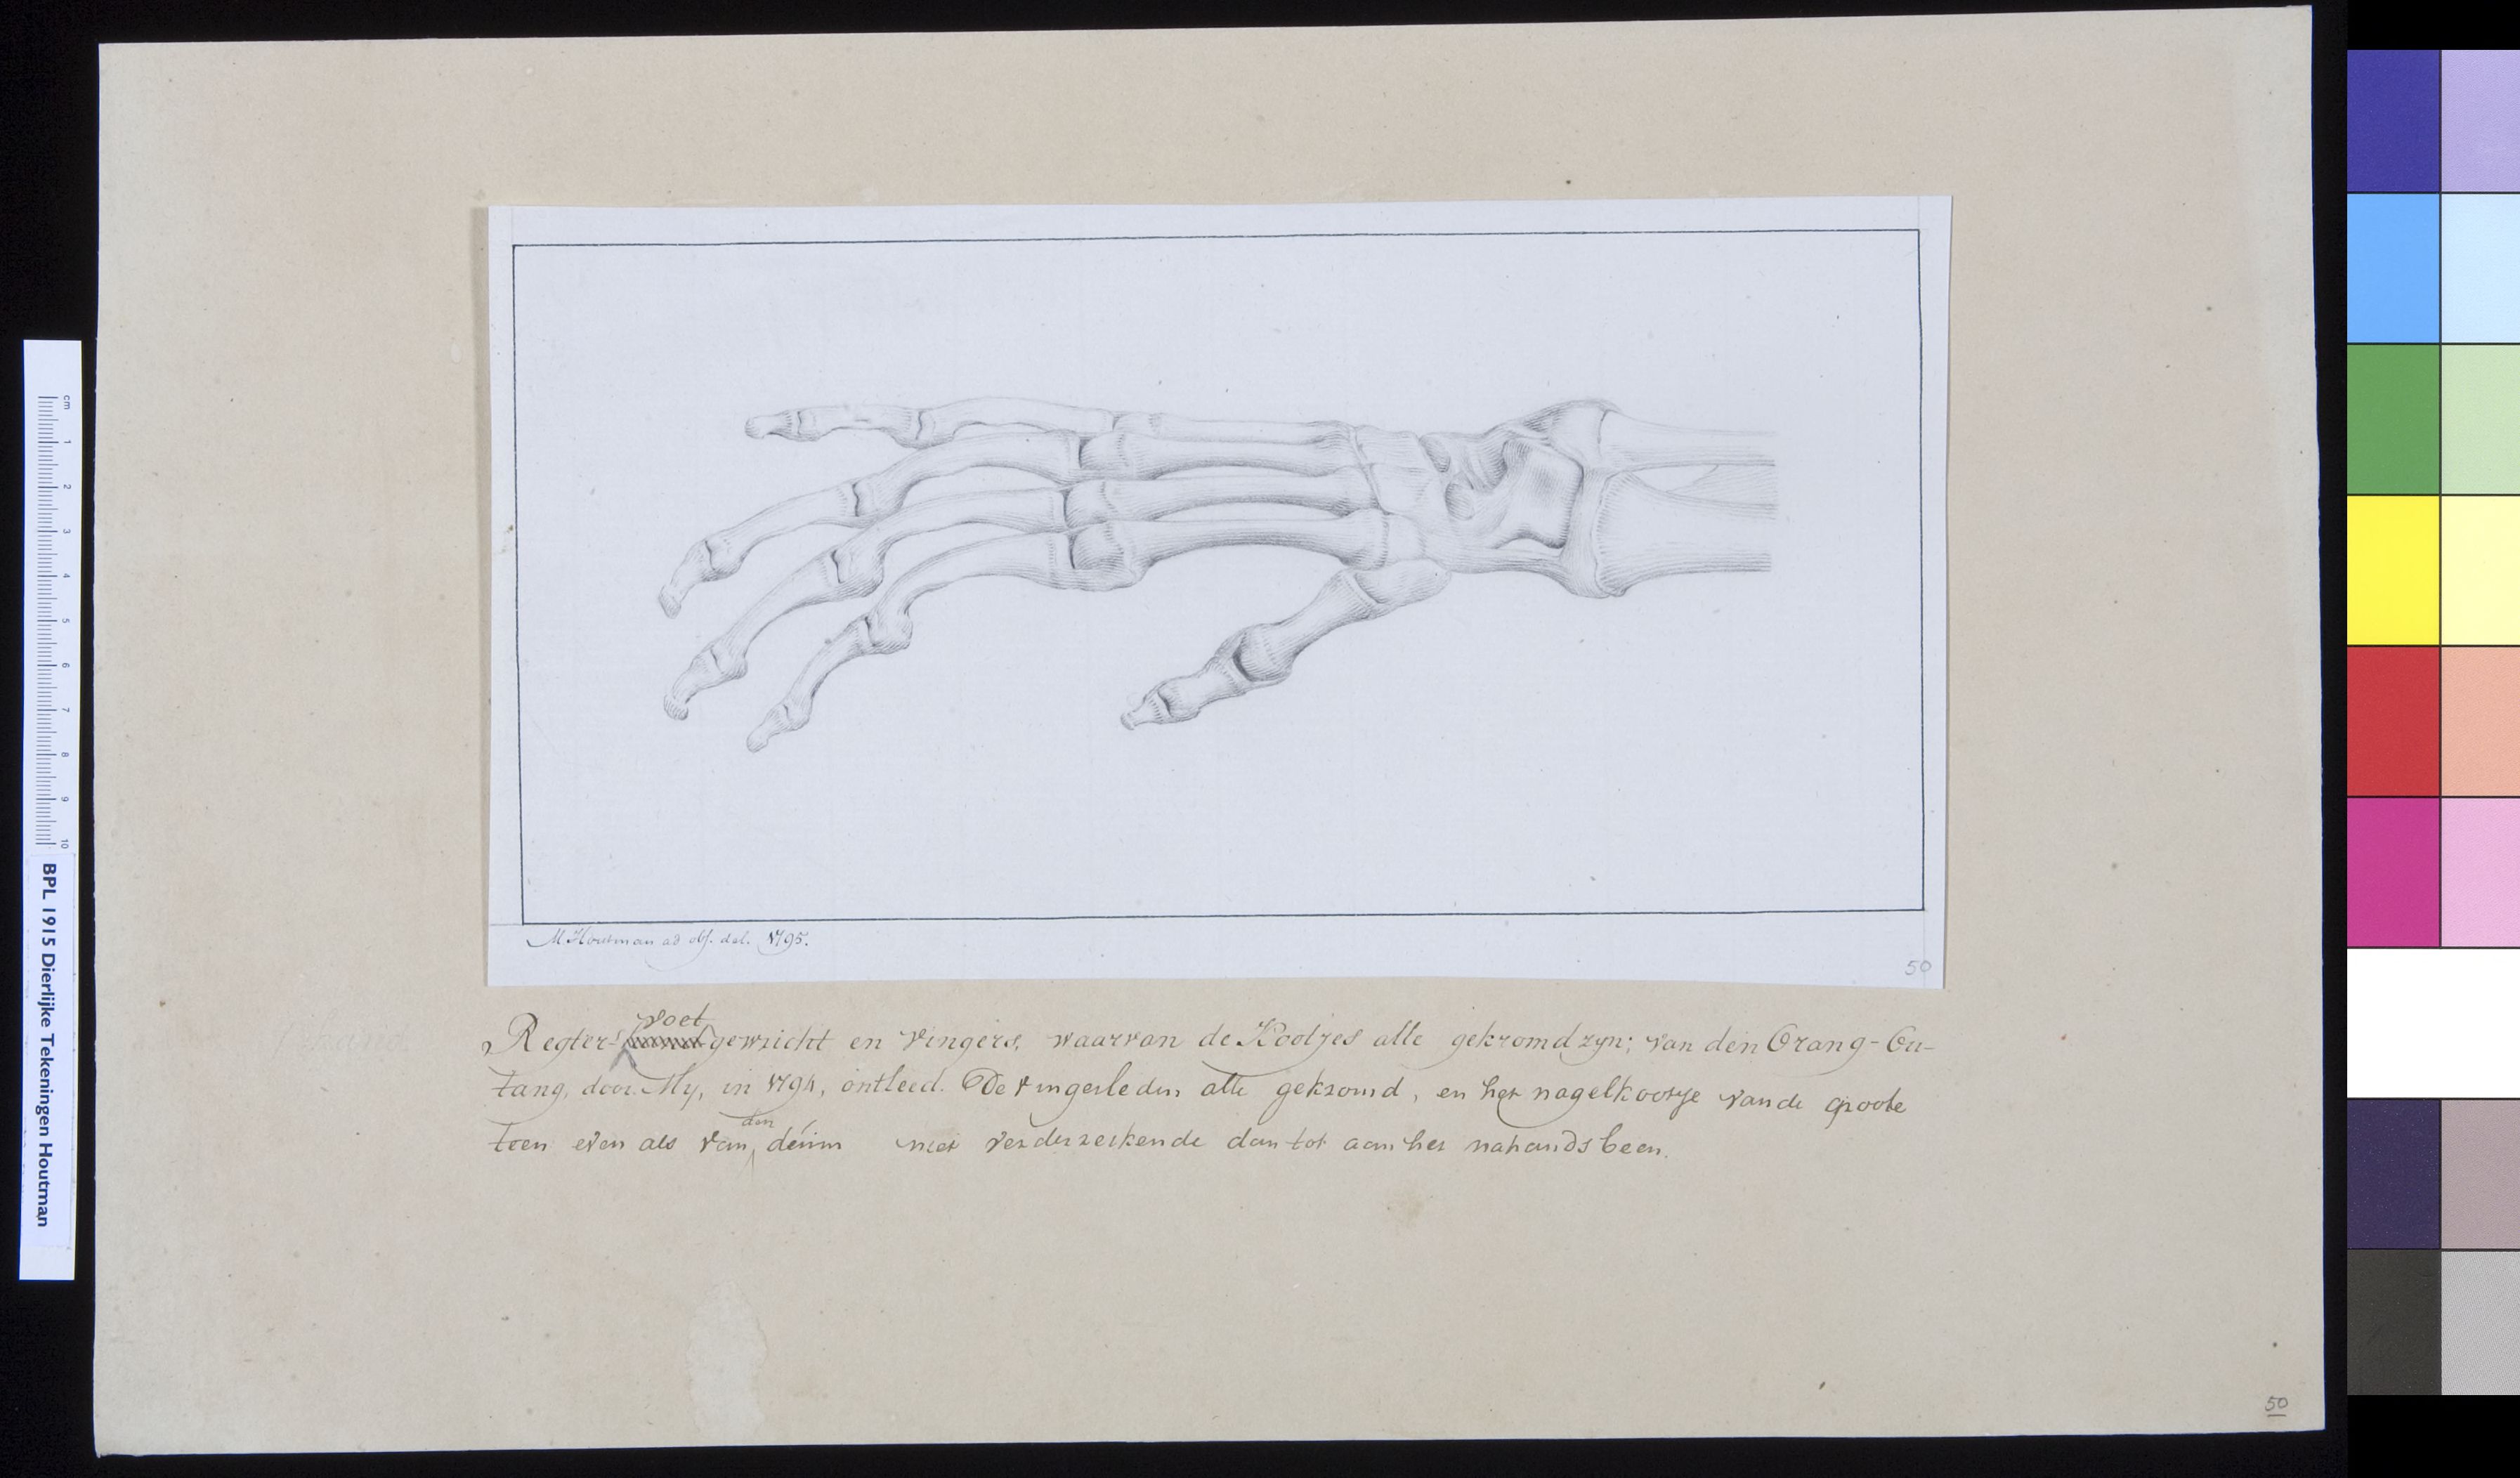 M. Houtman ad obj. del. 1795.
50
voet
Regter- gewricht en vingers, waarvan de Kootjes alle gekromd zyn; van den Orang-Ou-
tang, door My, in 1794, ontleed. De vingerleden alle gekromd, en het nagelkootje van de groote
den
teen even als van duim niet verder reikende dan tot aan het nahandsbeen.
50
cm 1 2 3 4 5 6 7 8 9 10
BPL 1915 Dierlijke Tekeningen Houtman